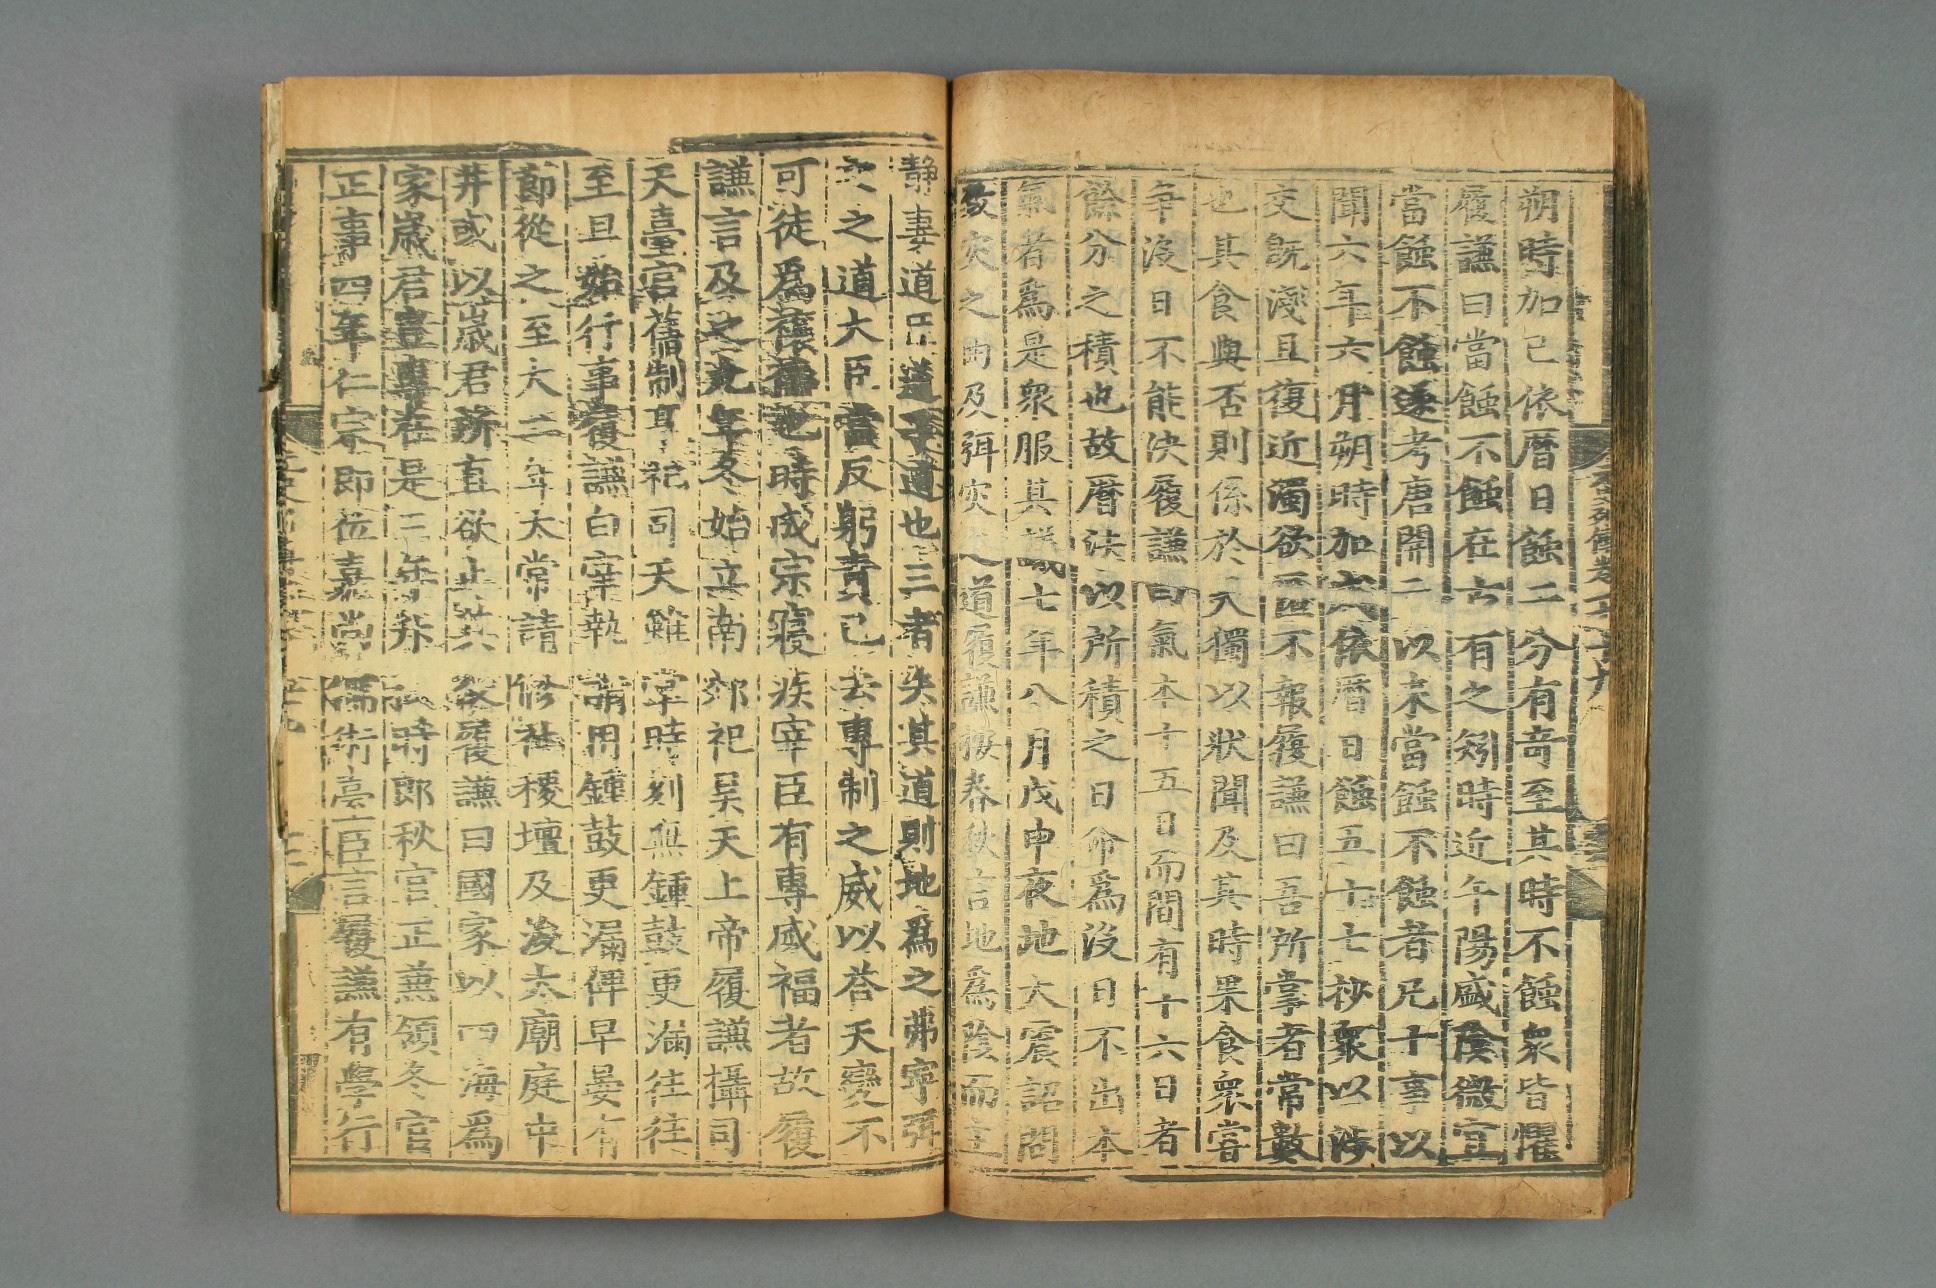 朔時加巳依曆日蝕二分有奇至其時不蝕衆皆懼
履謙曰當蝕不蝕在古有之矧時近午陽盛陰微宜
當蝕不蝕遂考唐開元以來當蝕不蝕者凡十事以
聞六年六月朔時加戌依曆日蝕五十七秒衆以涉
交旣淺且復近濁欲匿不報履謙曰吾所掌者常數
也其食與否則係於天獨以狀聞及其時果食衆嘗
爭沒日不能決履謙曰氣本十五日而間有十六日者
餘分之積也故曆法以所積之日命爲沒日不出本
氣者爲是衆服其議七年八月戊申夜地大震詔問
致災之由及弭災之道履謙按春秋言地爲陰而主
靜妻道臣道子道也三者失其道則地爲之弗寧弭
之之道大臣當反躬責己去專制之威以荅天變不
可徒爲禳禱也時成宗寢疾宰臣有專威福者故履
謙言及之九年冬始立南郊祀昊天上帝履謙攝司
天臺官舊制享祀司天雖掌時刻無鍾鼓更漏往往
至旦始行事履謙白宰執請用鍾鼓更漏俾早晏有
節從之至大二年太常請修社稷壇及浚太廟庭中
井或以歲君所直欲止其役履謙曰國家以四海爲
家歲君豈專在是三年升授時郎秋官正兼領冬官
正事四年仁宗即位嘉尚儒術臺臣言履謙有學行